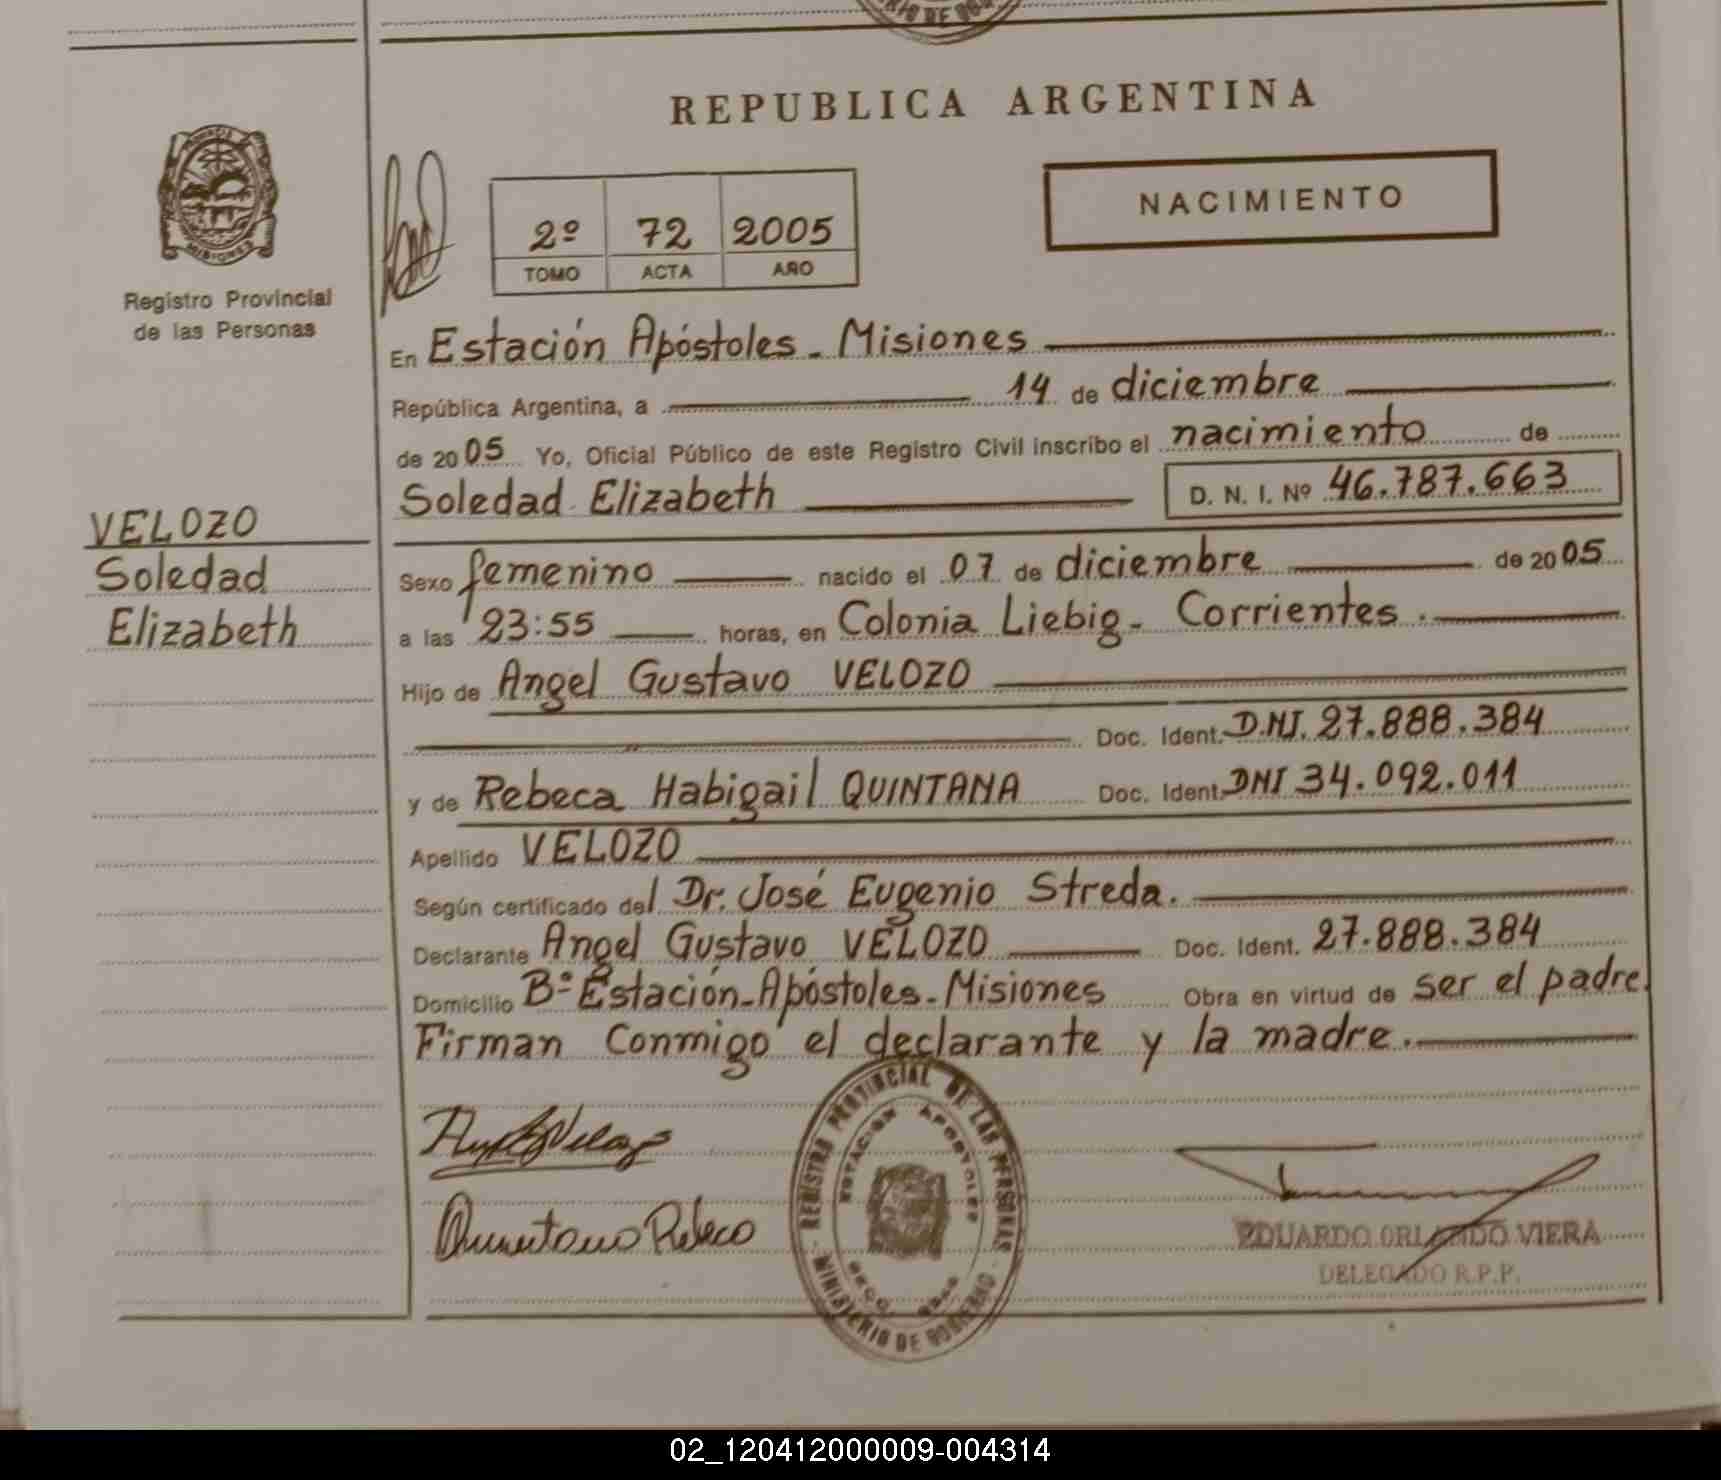 REPUBLICA ARGENTINA
MISIONES
Registro Provincial
de las Personas
2º 72 2005
TOMO ACTA AÑO
NACIMIENTO
En Estación Apóstoles - Misiones
República Argentina, a 14 de diciembre
de 2005 Yo, Oficial Público de este Registro Civil inscribo el nacimiento de
Soledad Elizabeth D. N. I. Nº 46.787.663
VELOZO
Soledad
Elizabeth
Sexo femenino nacido el 07 de diciembre de 2005
a las 23:55 horas, en Colonia Liebig - Corrientes.
Hijo de Angel Gustavo VELOZO
Doc. Ident. D.N.I. 27.888.384
y de Rebeca Habigail QUINTANA Doc. Ident. DNI 34.092.011
Apellido VELOZO
Según certificado del Dr. José Eugenio Streda.
Declarante Angel Gustavo VELOZO Doc. Ident. 27.888.384
Domicilio Bº Estación-Apóstoles-Misiones Obra en virtud de ser el padre.
Firman Conmigo el declarante y la madre.
REGISTRO PROVINCIAL DE LAS PERSONAS
ESTACION APOSTOLES
MINISTERIO DE GOBIERNO
Quintana Rebeca
EDUARDO ORLANDO VIERA
DELEGADO R.P.P.
02_120412000009-004314